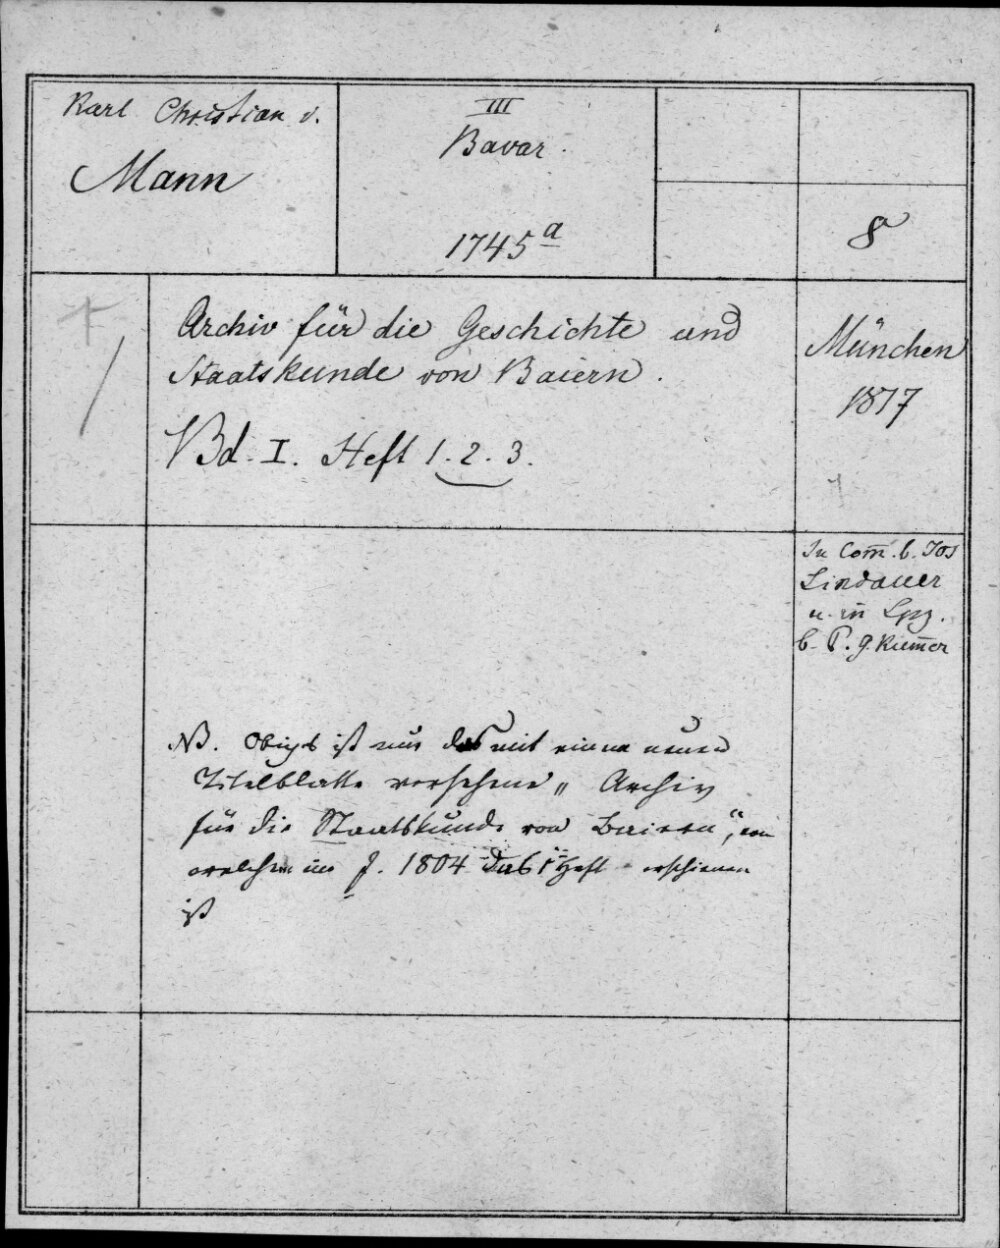 Karl Christian v.
Mann
III
Bavar.
1745 a
8
Archiv für die Geschichte und
Staatskunde von Baiern.
Bd. I. Heft 1. 2. 3.
München
1817
In Com̅. b. Jos
Lindauer
u. in Lpz.
b. P. G. Kum̅er
NB. Obiges ist nur das mit einem neuen
Titelblatte versehene „Archiv
für die Staatskunde von Baiern",
welchem im J. 1804 das 1te Heft erschienen
ist